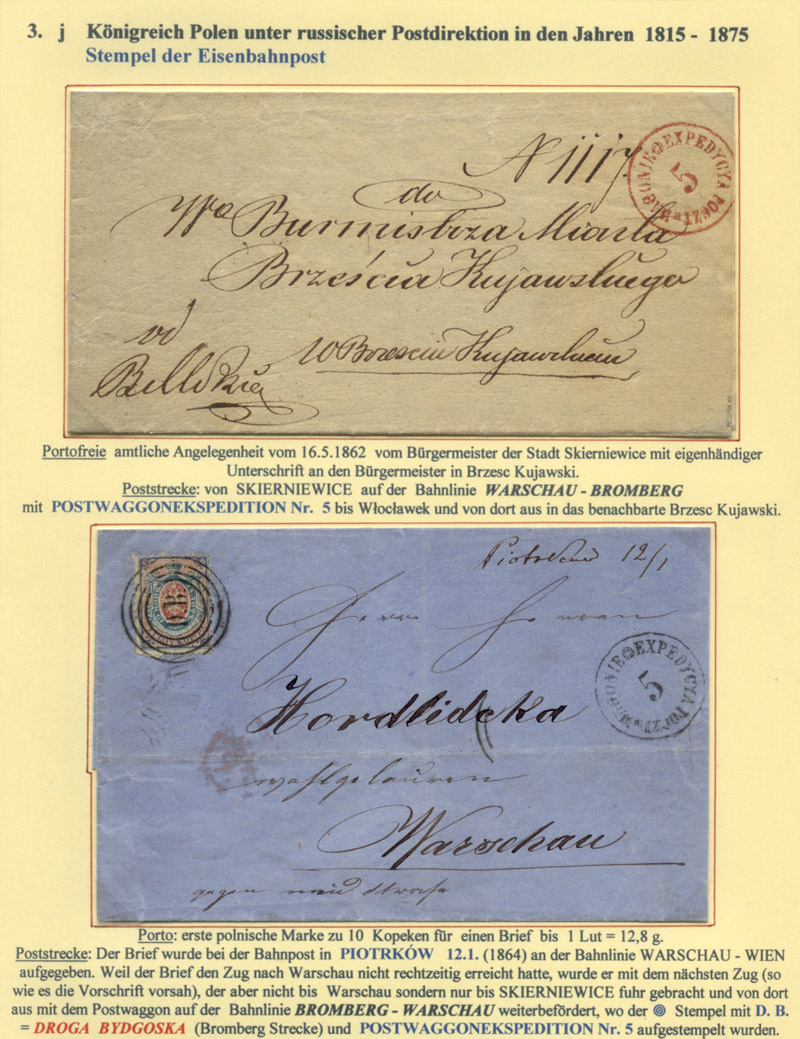 3. j Königreich Polen unter russischer Postdirektion in den Jahren 1815 - 1875
Stempel der Eisenbahnpost
N 1117
EXPEDYCYA POCZT: W WAGONIE
5
do
Wo Burmistrza Miasta
Brześcia Kujawskiego
od
w Brzesciu Kujawskiem
Portofreie amtliche Angelegenheit vom 16.5.1862 vom Bürgermeister der Stadt Skierniewice mit eigenhändiger
Unterschrift an den Bürgermeister in Brzesc Kujawski.
Poststrecke: von SKIERNIEWICE auf der Bahnlinie WARSCHAU - BROMBERG
mit POSTWAGGONEKSPEDITION Nr. 5 bis Włocławek und von dort aus in das benachbarte Brzesc Kujawski.
12/1
Herrn Herren
EXPEDYCYA POCZT: W WAGONIE
5
Hordlidcka
Warschau
Porto: erste polnische Marke zu 10 Kopeken für einen Brief bis 1 Lut = 12,8 g.
Poststrecke: Der Brief wurde bei der Bahnpost in PIOTRKÓW 12.1. (1864) an der Bahnlinie WARSCHAU - WIEN
aufgegeben. Weil der Brief den Zug nach Warschau nicht rechtzeitig erreicht hatte, wurde er mit dem nächsten Zug (so
wie es die Vorschrift vorsah), der aber nicht bis Warschau sondern nur bis SKIERNIEWICE fuhr gebracht und von dort
aus mit dem Postwaggon auf der Bahnlinie BROMBERG - WARSCHAU weiterbefördert, wo der Stempel mit D. B.
= DROGA BYDGOSKA (Bromberg Strecke) und POSTWAGGONEKSPEDITION Nr. 5 aufgestempelt wurden.